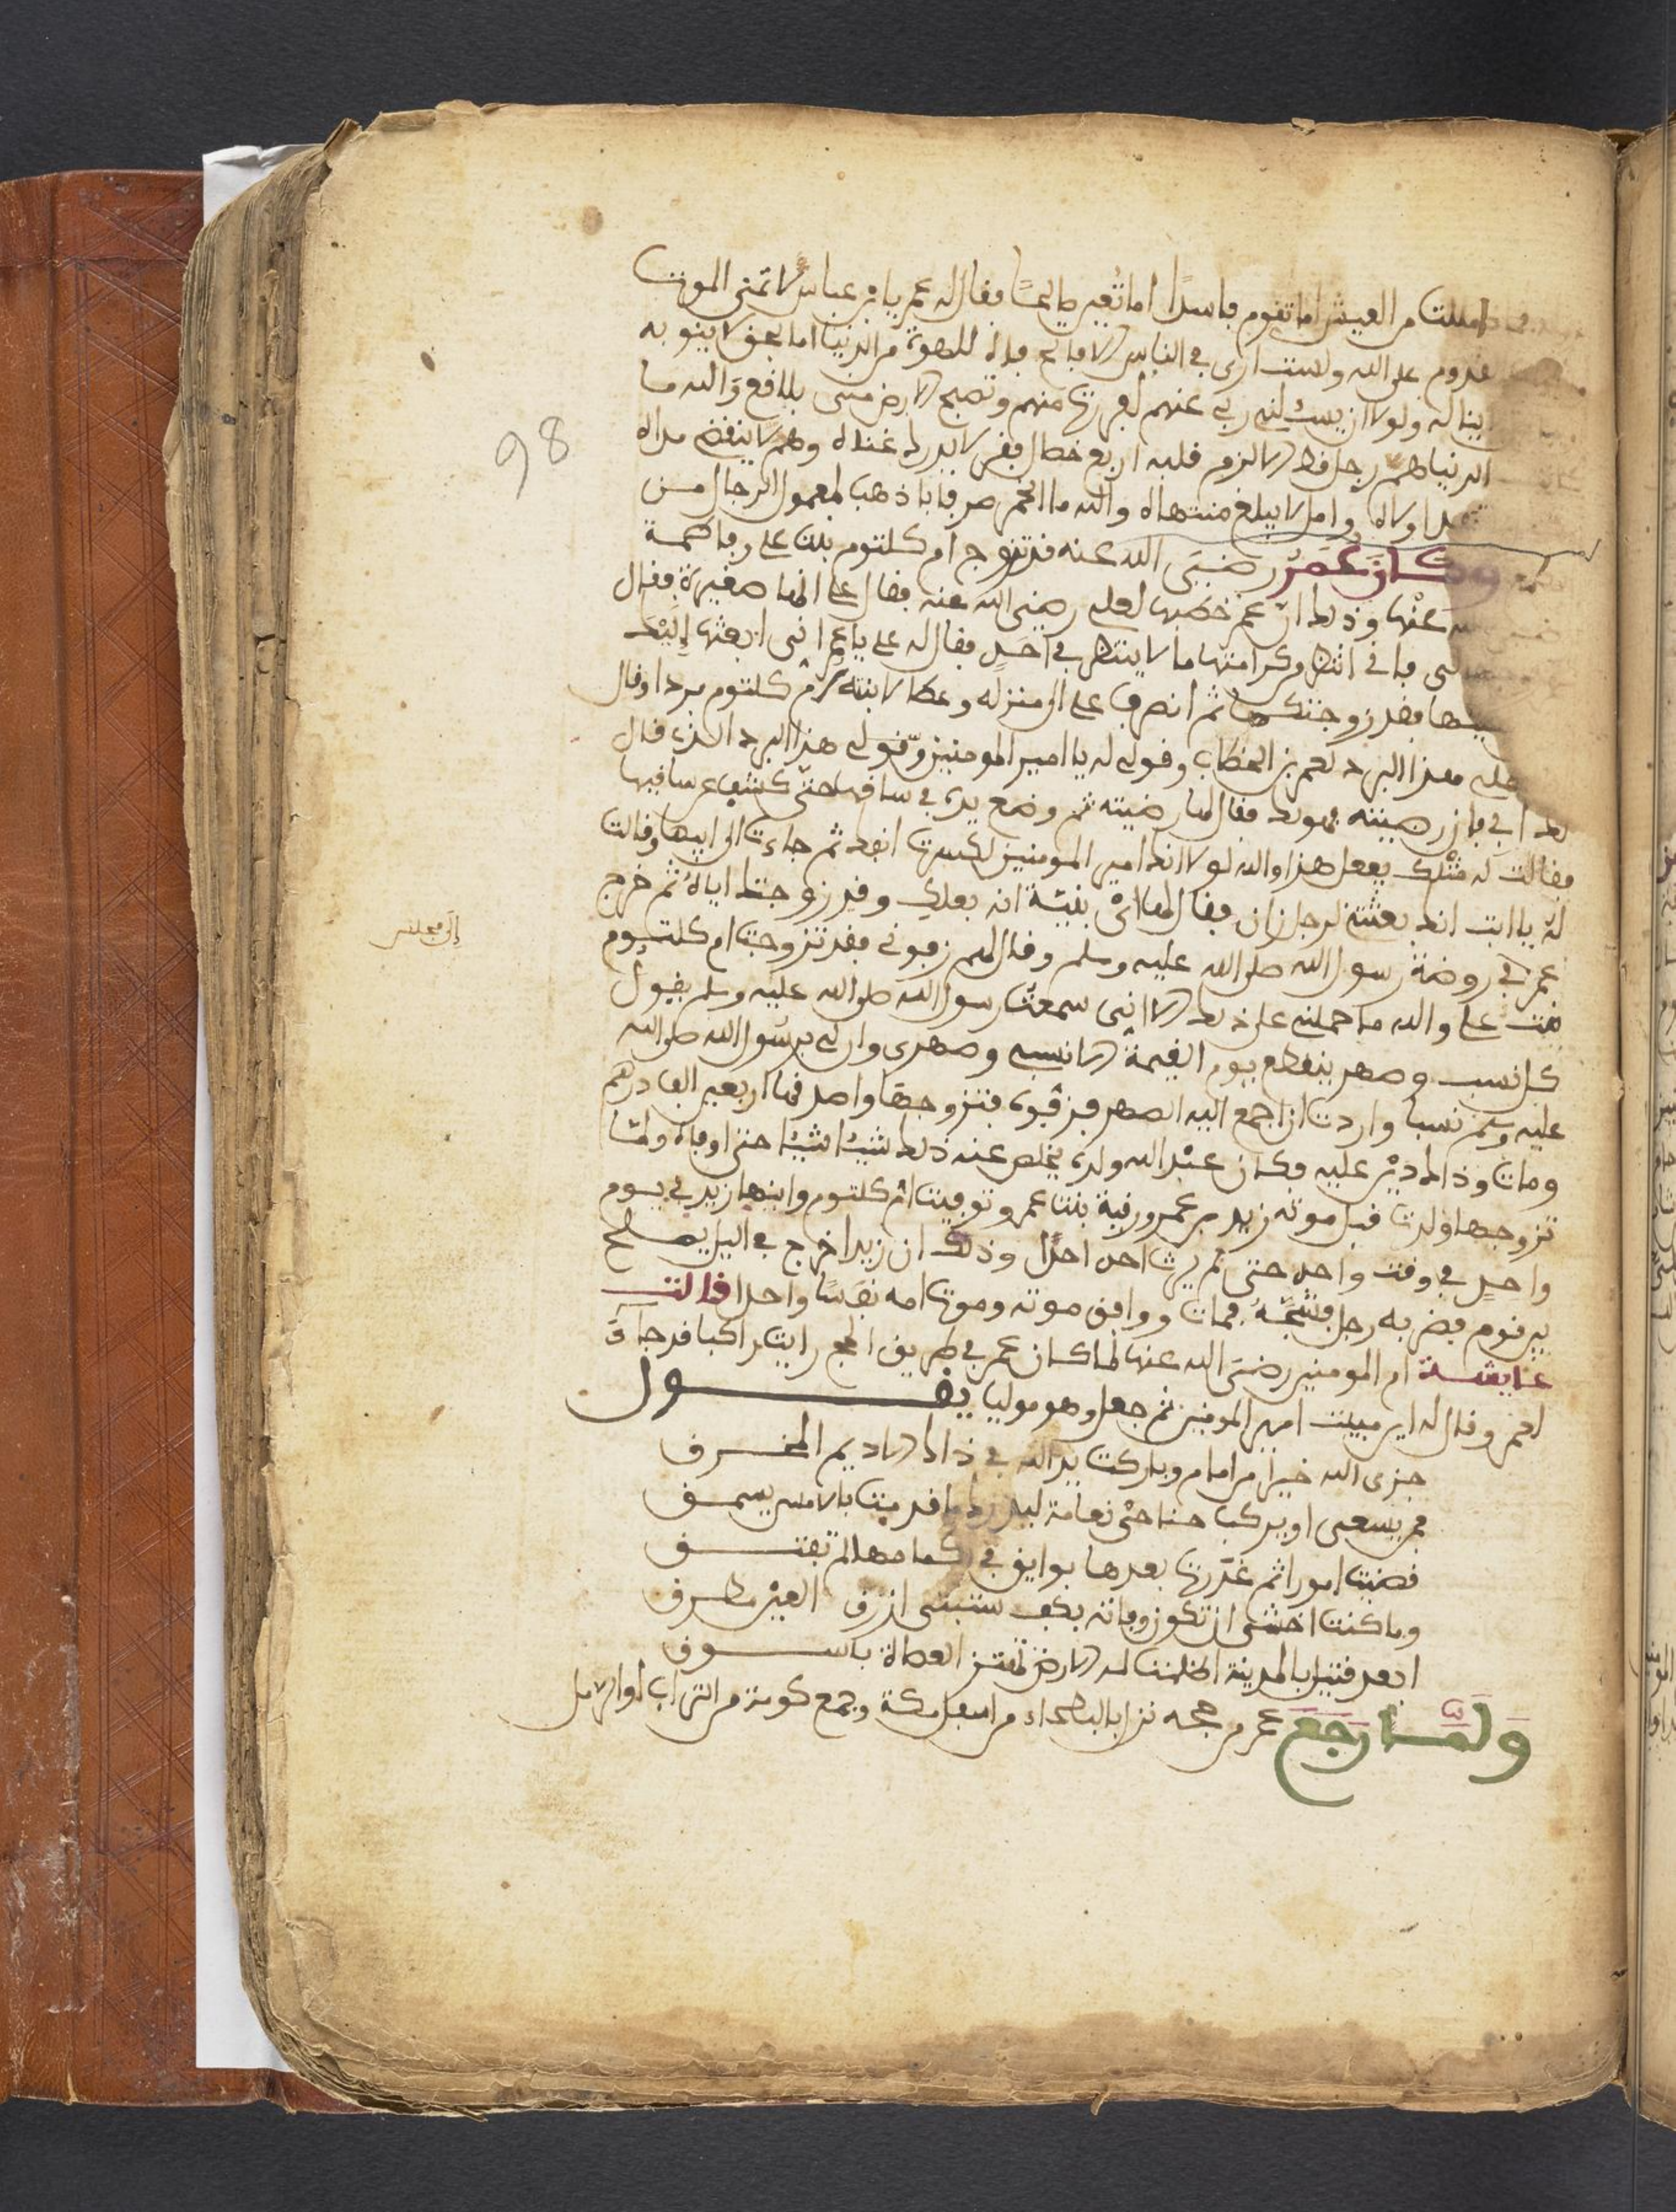 مللت من العيش اما تقوم فاسدا اما تغير صالحا فقال له عمر يا بن عباس لا تمنى الموت
على الله ولست ارى في الناس الا فاتح فاه للهوة من الدنيا اما بحق لا ينوء به
يناله ولولا ان يسئلني ربي عنهم لهربت منهم وتصبح الارض منى بلاقع والله ما
الدنيا هم رجل قط الا لزم قلبه اربع خصال فقر لا يدرك غناه وهم لا ينقضي مداه
وامل لا يبلغ منتهاه والله ما الخمر صرفا باذهب لعقول الرجال من
وكان عمر رضي الله عنه قد تزوج ام كلثوم بنت علي وفاطمة
عنها وذلك ان عمر خطبها لعلي رضي الله عنه فقال علي انها صغيرة فقال
كرامتها ما لا ينتظره احد فقال له علي يا عمر اني ابعثها اليك
فقد زوجتكها ثم انصرف علي الى منزله وعطا لابنته ام كلثوم بردا وقال
بهذا البرد لعمر بن الخطاب وقولي له يا امير المومنين وقولي هذا البرد الذي قال
لك ابي فان رضيته فهو لك فقال لها رضيته ثم وضع يده في ساقها حتى كشف عن ساقيها
فقالت له مثلك يفعل هذا والله لولا انك امير المومنين لكسرت انفك ثم جاءت الى ابيها وقالت
له يا ابت انك بعثتني لرجل زان فقال لها اي بنية انه بعلك وقد زوجتك اياه ثم خرج
إلى مجلس
عمر في روضة رسول الله صلى الله عليه وسلم وقال لهم زفوني فقد تزوجت ام كلثوم
بنت علي والله ما حملني على ذلك الا اني سمعت رسول الله صلى الله عليه وسلم يقول
كل نسب وصهر ينقطع يوم القيمة الا نسبي وصهري وان لي برسول الله صلى الله
عليه وسلم نسبا واردت ان اجمع اليه الصهر فتزوجها واصدقها اربعين الف درهم
ومات وذاك دين عليه وكان عبد الله ولده يخلص عنه ذلك شيئا شيئا حتى اوفاه ولما
تزوجها ولدت قبل موته زيد بن عمر ورقية بنت عمر وتوفيت ام كلثوم وابنها زيد في يوم
واحد في وقت واحد حتى لم يرث احد احدا وذلك ان زيدا خرج في اليل يصلح
بين قوم فضربه رجل فشجه فمات ووافق موته وموت امه نفسا واحدا قالت
عايشة ام المومنين رضي الله عنها لما كان عمر في طريق الحج رايت راكبا قد جاء
لعمر وقال له اين مبيت امير المومنين ثم جعل وهو موليا يقول
جزى الله خيرا من امام وباركت يد الله في ذاك الاديم الممزق
فمن يسعى او يركب جناحي نعامة ليدرك ما قدمت بالامس يسبق
قضيت امورا ثم غدرت بعدها بوايق في اكمامها لم تفتق
وما كنت اخشى ان تكون وفاته بكف سبنتى ازرق العين مطرق
ابعد قتيل بالمدينة اظلمت له الارض تهتز العضاة باسوق
ولما رجع عمر من حجه نزل بالبطحاء من اسفل مكة وجمع كومة من التراب
98